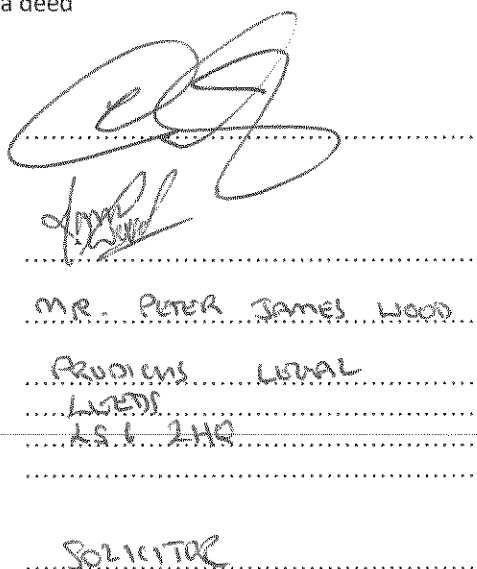 a deed
MR. PETER JAMES WOOD
LEGAL
LEEDS
LS6 2HQ
SOLICITOR